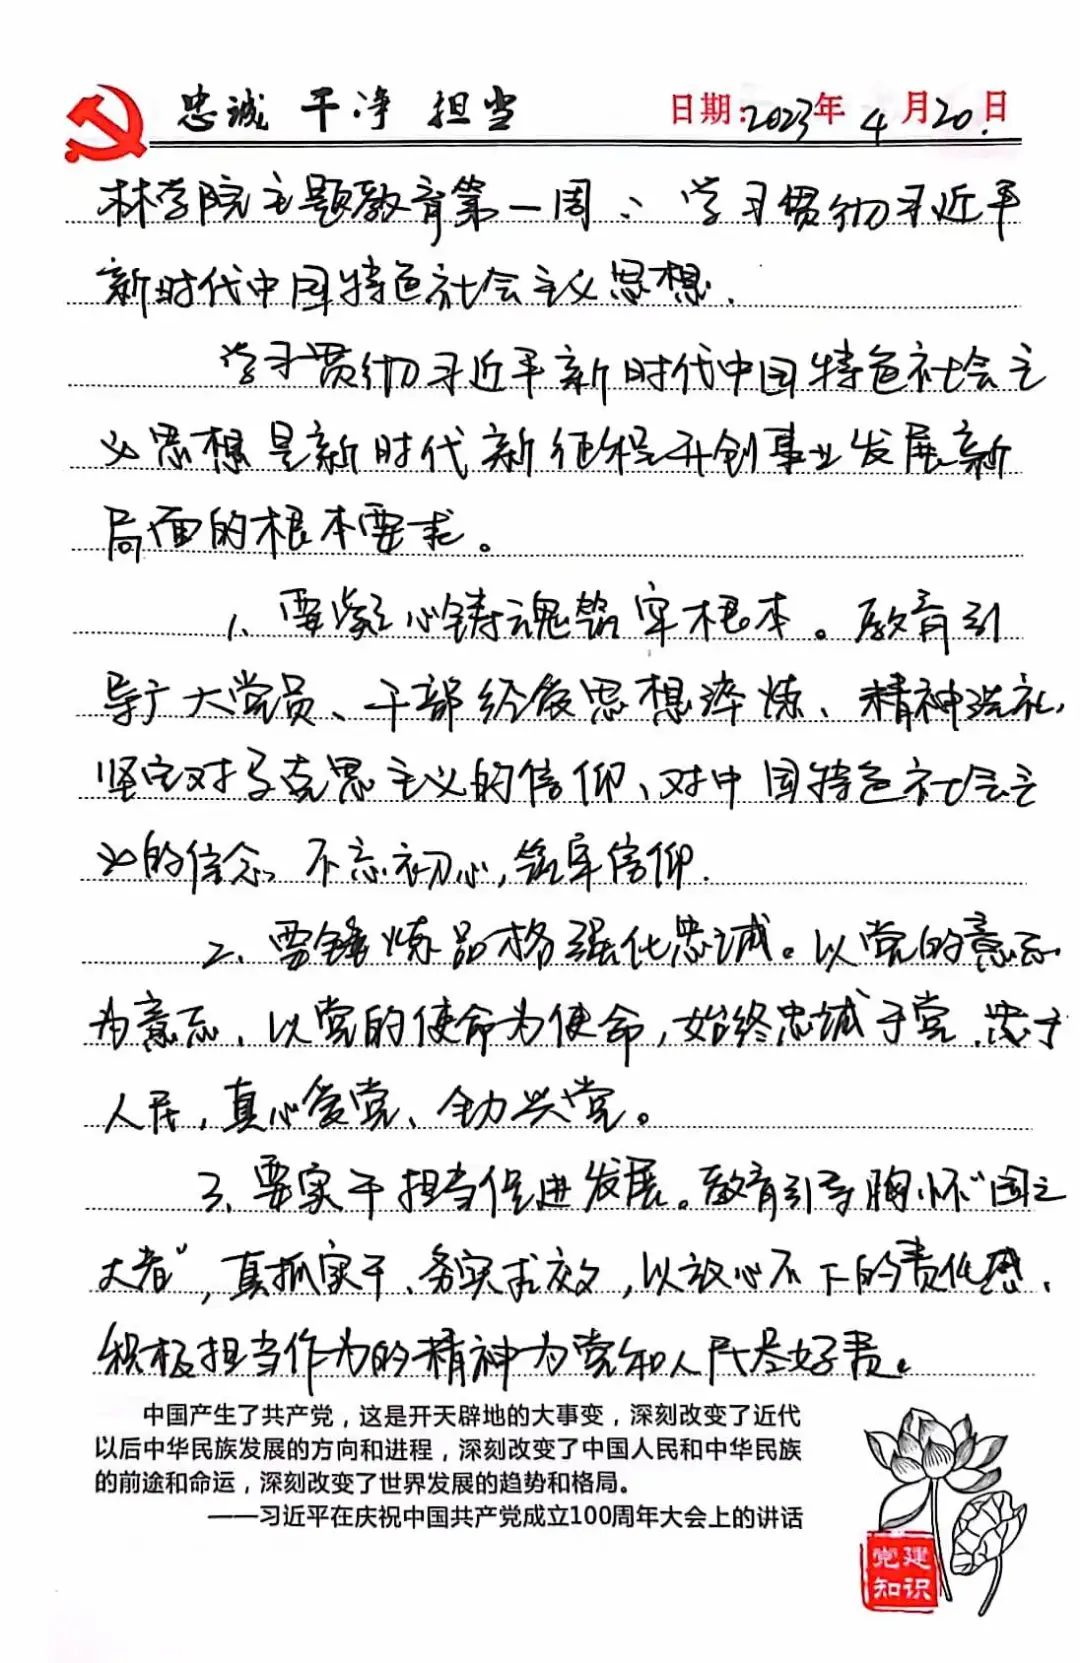 忠诚 干净 担当 日期:2023年4月20日
林学院主题教育第一周:学习贯彻习近平
新时代中国特色社会主义思想.
学习贯彻习近平新时代中国特色社会主
义思想是新时代新征程开创事业发展新
局面的根本要求。
1、要凝心铸魂筑牢根本。教育引
导广大党员、干部经受思想淬炼、精神洗礼,
坚定对马克思主义的信仰、对中国特色社会主
义的信念,不忘初心,筑牢信仰.
2、要锤炼品格强化忠诚。以党的意志
为意志、以党的使命为使命,始终忠诚于党、忠于
人民,真心爱党、全力兴党。
3、要实干担当促进发展。教育引导胸怀“国之
大者”,真抓实干、务实求效,以放心不下的责任感、
积极担当作为的精神为党和人民尽好责。
中国产生了共产党,这是开天辟地的大事变,深刻改变了近代
以后中华民族发展的方向和进程,深刻改变了中国人民和中华民族
的前途和命运,深刻改变了世界发展的趋势和格局。
——习近平在庆祝中国共产党成立100周年大会上的讲话
党建
知识